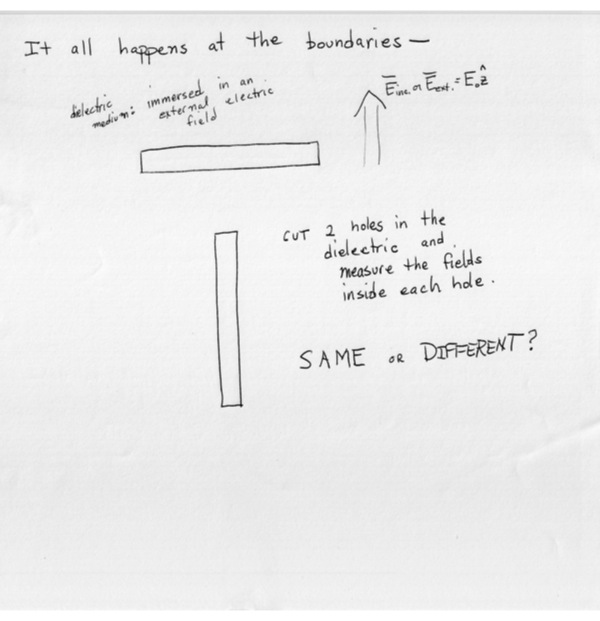 It all happens at the boundaries —
dielectric medium: immersed in an external electric field
E̅inc. or E̅ext. = E₀ẑ
CUT 2 holes in the
dielectric and
measure the fields
inside each hole.
SAME OR DIFFERENT?